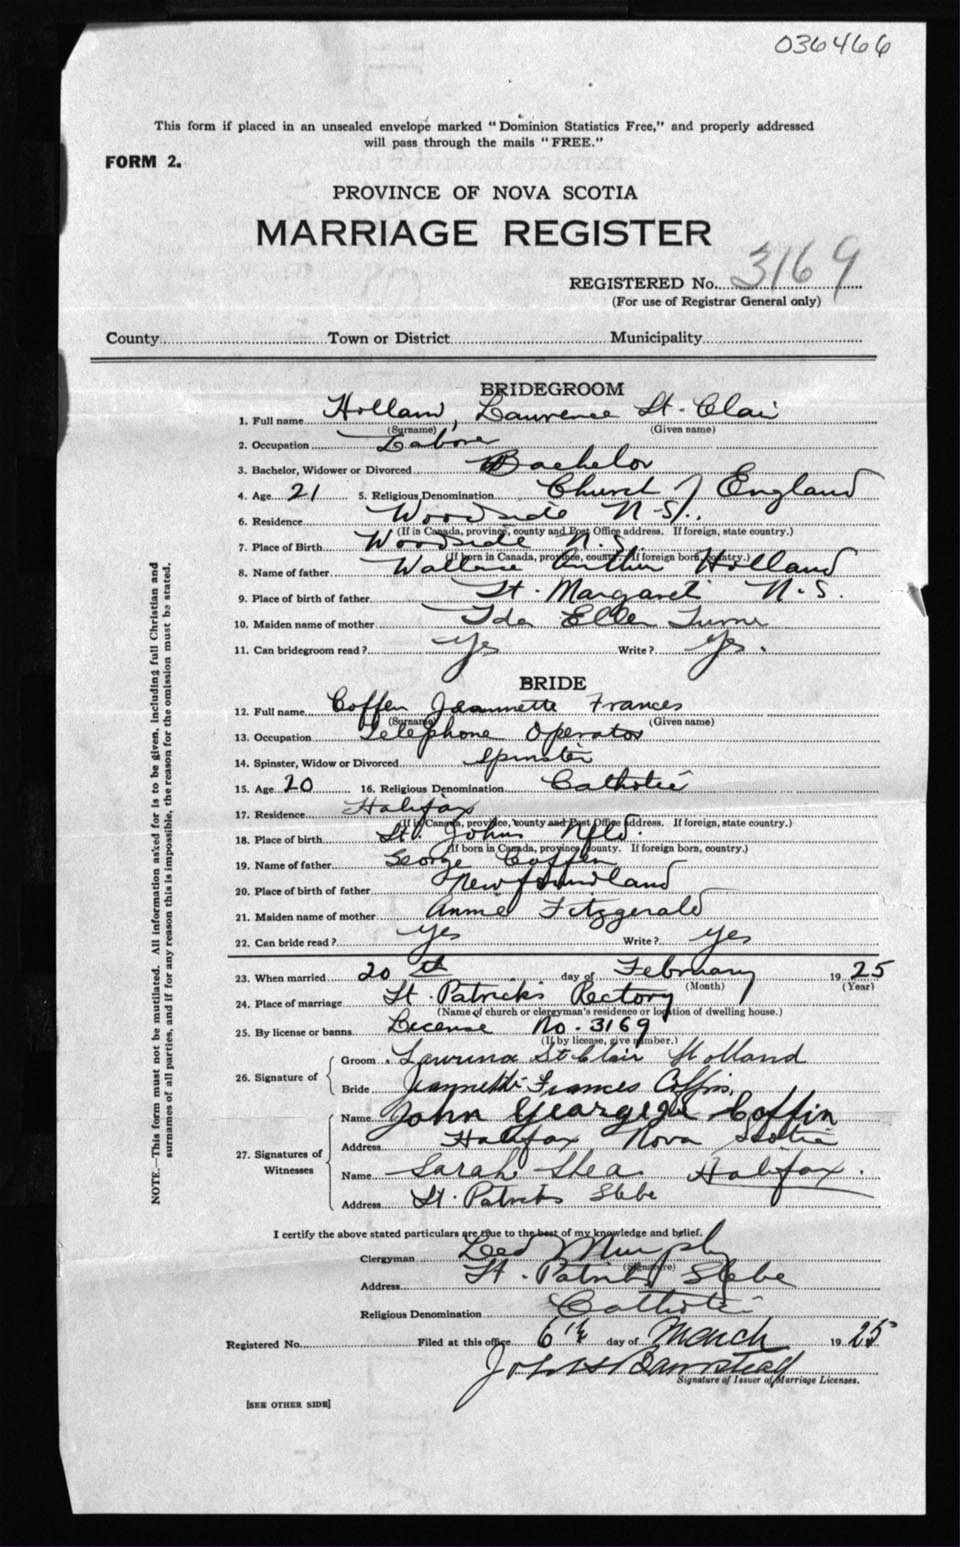 036466
This form if placed in an unsealed envelope marked "Dominion Statistics Free," and properly addressed
will pass through the mails "FREE."
FORM 2.
PROVINCE OF NOVA SCOTIA
MARRIAGE REGISTER
REGISTERED No. 3169
(For use of Registrar General only)
County Town or District Municipality
BRIDEGROOM
1. Full name Holland, Laurence St. Clair
(Surname) (Given name)
2. Occupation Labore
3. Bachelor, Widower or Divorced Bachelor
4. Age 21 5. Religious Denomination Church of England
6. Residence Woodside N.S.
(If in Canada, province, county and Post Office address. If foreign, state country.)
7. Place of Birth Woodside N.S.
(If born in Canada, province, county. If foreign born, country.)
8. Name of father Wallace Arthur Holland
9. Place of birth of father St. Margaret N.S.
10. Maiden name of mother Ida Ellen Turner
11. Can bridegroom read? Yes Write? Yes.
BRIDE
12. Full name Coffen Jeannette Frances
(Surname) (Given name)
13. Occupation Telephone Operator
14. Spinster, Widow or Divorced Spinster
15. Age 20 16. Religious Denomination Catholic
17. Residence Halifax
(If in Canada, province, county and Post Office address. If foreign, state country.)
18. Place of birth St. Johns Nfld.
(If born in Canada, province county. If foreign born, country.)
19. Name of father George Coffen
20. Place of birth of father Newfoundland
21. Maiden name of mother Annie Fitzgerald
22. Can bride read? Yes Write? Yes
23. When married 20th day of February 1925
(Month) (Year)
24. Place of marriage St. Patrick's Rectory
(Name of church or clergyman's residence or location of dwelling house.)
25. By license or banns License No. 3169
(If by license, give number.)
26. Signature of Groom Lawrence St Clair Holland
Bride Jeannette Frances Coffin
27. Signatures of Witnesses Name John George Coffin
Address Halifax Nova Scotia
Name Sarah Shea Halifax.
Address St. Patricks Glebe
I certify the above stated particulars are true to the best of my knowledge and belief.
Clergyman Murphy
(Signature)
Address St. Patricks Glebe
Religious Denomination Catholic
Registered No. Filed at this office 6th day of March 1925
Signature of Issuer of Marriage Licenses.
[SEE OTHER SIDE]
NOTE.—This form must not be mutilated. All information asked for is to be given, including full Christian and
surnames of all parties, and if for any reason this is impossible, the reason for the omission must be stated.